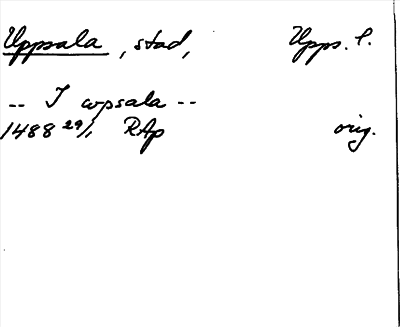 Uppsala, stad, Upps. l.
-- I wpsala --
1488 29/1 RAp orig.